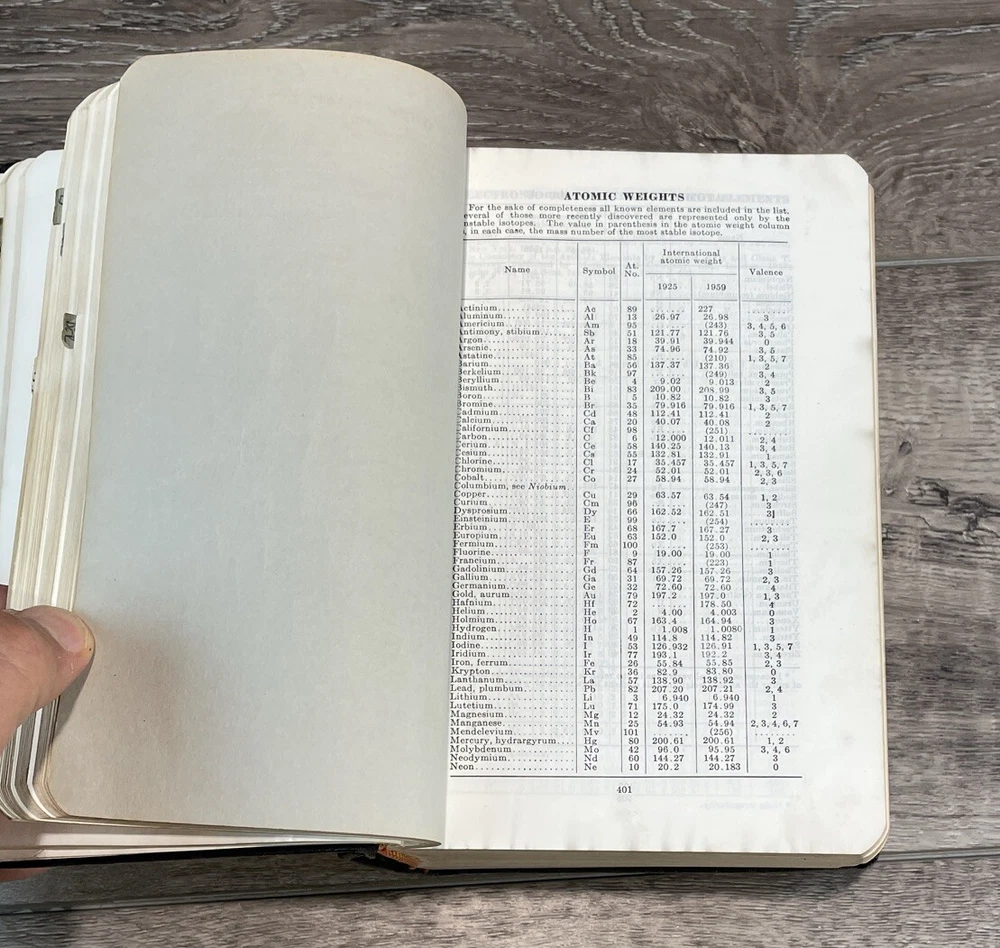 ATOMIC WEIGHTS
For the sake of completeness all known elements are included in the list.
everal of those more recently discovered are represented only by the
nstable isotopes. The value in parenthesis in the atomic weight column
, in each case, the mass number of the most stable isotope.
Name Symbol At. No. International atomic weight Valence
1925 1959
ctinium Ac 89 ....... 227 .......
luminum Al 13 26.97 26.98 3
mericium Am 95 ....... (243) 3, 4, 5, 6
ntimony, stibium Sb 51 121.77 121.76 3, 5
rgon Ar 18 39.91 39.944 0
rsenic As 33 74.96 74.92 3, 5
statine At 85 ....... (210) 1, 3, 5, 7
arium Ba 56 137.37 137.36 2
erkelium Bk 97 ....... (249) 3, 4
eryllium Be 4 9.02 9.013 2
ismuth Bi 83 209.00 208.99 3, 5
oron B 5 10.82 10.82 3
romine Br 35 79.916 79.916 1, 3, 5, 7
admium Cd 48 112.41 112.41 2
alcium Ca 20 40.07 40.08 2
alifornium Cf 98 ....... (251) .......
arbon C 6 12.000 12.011 2, 4
erium Ce 58 140.25 140.13 3, 4
esium Cs 55 132.81 132.91 1
hlorine Cl 17 35.457 35.457 1, 3, 5, 7
hromium Cr 24 52.01 52.01 2, 3, 6
Cobalt Co 27 58.94 58.94 2, 3
Columbium, see Niobium
Copper Cu 29 63.57 63.54 1, 2
Curium Cm 96 ....... (247) 3
Dysprosium Dy 66 162.52 162.51 3
Einsteinium E 99 ....... (254) .......
Erbium Er 68 167.7 167.27 3
Europium Eu 63 152.0 152.0 2, 3
Fermium Fm 100 ....... (253) .......
Fluorine F 9 19.00 19.00 1
Francium Fr 87 ....... (223) 1
Gadolinium Gd 64 157.26 157.26 3
Gallium Ga 31 69.72 69.72 2, 3
Germanium Ge 32 72.60 72.60 4
Gold, aurum Au 79 197.2 197.0 1, 3
Hafnium Hf 72 ....... 178.50 4
Helium He 2 4.00 4.003 0
Holmium Ho 67 163.4 164.94 3
Hydrogen H 1 1.008 1.0080 1
Indium In 49 114.8 114.82 3
Iodine I 53 126.932 126.91 1, 3, 5, 7
Iridium Ir 77 193.1 192.2 3, 4
Iron, ferrum Fe 26 55.84 55.85 2, 3
Krypton Kr 36 82.9 83.80 0
Lanthanum La 57 138.90 138.92 3
Lead, plumbum Pb 82 207.20 207.21 2, 4
Lithium Li 3 6.940 6.940 1
Lutetium Lu 71 175.0 174.99 3
Magnesium Mg 12 24.32 24.32 2
Manganese Mn 25 54.93 54.94 2, 3, 4, 6, 7
Mendelevium Mv 101 ....... (256) .......
Mercury, hydrargyrum Hg 80 200.61 200.61 1, 2
Molybdenum Mo 42 96.0 95.95 3, 4, 6
Neodymium Nd 60 144.27 144.27 3
Neon Ne 10 20.2 20.183 0
401